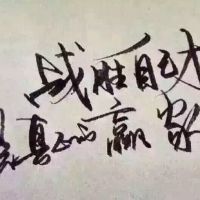 战胜自己才
是真正的赢家